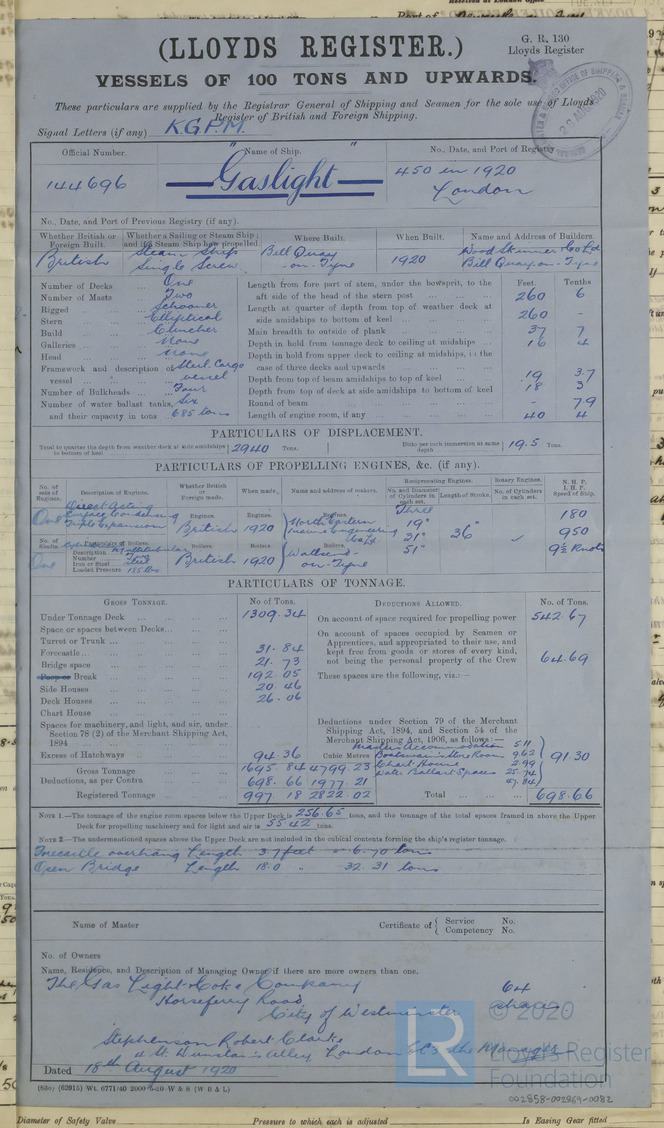 (LLOYDS REGISTER.)
G. R. 130
Lloyds Register
VESSELS OF 100 TONS AND UPWARDS.
These particulars are supplied by the Registrar General of Shipping and Seamen for the sole use of Lloyds
Register of British and Foreign Shipping.
Signal Letters (if any) K.G.P.M.
Official Number. "Name of Ship. " No., Date, and Port of Registry
144696 Gaslight 450 in 1920
London
No., Date, and Port of Previous Registry (if any).
Whether British or Foreign Built. Whether a Sailing or Steam Ship; and if a Steam Ship how propelled Where Built. When Built. Name and Address of Builders.
British Steam Ship Single Screw Bill Quay -on-Tyne 1920 Wood Skinner & Co Ltd Bill Quay-on-Tyne
Number of Decks One
Number of Masts Two
Rigged Schooner
Stern Elliptical
Build Clincher
Galleries None
Head None
Framework and description of vessel Steel Cargo vessel
Number of Bulkheads Four
Number of water ballast tanks, Six
and their capacity in tons 685 tons
Feet. Tenths
Length from fore part of stem, under the bowsprit, to the aft side of the head of the stern post 260 6
Length at quarter of depth from top of weather deck at side amidships to bottom of keel 260 -
Main breadth to outside of plank 37 7
Depth in hold from tonnage deck to ceiling at midships 16 4
Depth in hold from upper deck to ceiling at midships, in the case of three decks and upwards
Depth from top of beam amidships to top of keel 19 3.7
Depth from top of deck at side amidships to bottom of keel 18 3
Round of beam - 7.9
Length of engine room, if any 40 4
PARTICULARS OF DISPLACEMENT.
Total to quarter the depth from weather deck at side amidships to bottom of keel 2940 Tons. Ditto per inch immersion at same depth 19.5 Tons.
PARTICULARS OF PROPELLING ENGINES, &c. (if any).
No. of sets of Engines. Description of Engines. Whether British or Foreign made. When made. Name and address of makers. Reciprocating Engines. Rotary Engines. N. H. P. I. H. P. Speed of Ship.
No. and Diameter of Cylinders in each set. Length of Stroke. No. of Cylinders in each set.
One Direct Acting Surface Condensing Triple Expansion Engines. British Engines. 1920 Engines. North Eastern Marine Engineering Co Ld Three 19" 31" 51" 36" 180
950
9½ Knots
No. of Shafts. Particulars of Boilers.
One Description Multitubular
Number Two
Iron or Steel Steel
Loaded Pressure 185 lbs
Boilers. British Boilers. 1920 Boilers. Wallsend-on-Tyne
PARTICULARS OF TONNAGE.
GROSS TONNAGE. No of Tons. DEDUCTIONS ALLOWED. No. of Tons.
Under Tonnage Deck 1309.34
Space or spaces between Decks
Turret or Trunk
Forecastle 31.84
Bridge space 21.73
Poop or Break 192.05
Side Houses 20.46
Deck Houses 26.06
Chart House
Spaces for machinery, and light, and air, under Section 78 (2) of the Merchant Shipping Act, 1894
Excess of Hatchways 94.36
Cubic Metres
Gross Tonnage 1695.84 4799.23
Deductions, as per Contra 698.66 1977.21
Registered Tonnage 997.18 2822.02
On account of space required for propelling power 542.67
On account of spaces occupied by Seamen or Apprentices, and appropriated to their use, and kept free from goods or stores of every kind, not being the personal property of the Crew 64.69
These spaces are the following, viz.:—
Deductions under Section 79 of the Merchant Shipping Act, 1894, and Section 54 of the Merchant Shipping Act, 1906, as follows:—
Master's Accommodation 5.11
Boatswain's Store Room 9.62
Chart House 2.99
Water Ballast Spaces 25.74
47.84
91.30
Total 698.66
NOTE 1.—The tonnage of the engine room spaces below the Upper Deck is 256.65 tons, and the tonnage of the total spaces framed in above the Upper
Deck for propelling machinery and for light and air is 55.42 tons.
NOTE 2.—The undermentioned spaces above the Upper Deck are not included in the cubical contents forming the ship's register tonnage.
Forecastle overhang Length 3.7 feet = 6.70 tons
Open Bridge Length 18.0 " 32.31 tons
Name of Master Certificate of { Service No.
Competency No.
No. of Owners
Name, Residence, and Description of Managing Owner if there are more owners than one.
The Gas Light & Coke Company 64
Horseferry Road shares
City of Westminster
Stephenson Robert Clarke
4 St. Dunstan's Alley London EC3 the Manager
Dated 18th August 1920
(65o) (62915) Wt. 6771/40 2000 5-20 W & S (W B & L)
LR © 2020
Lloyd's Register
Foundation
002858-002869-0082
Diameter of Safety Valve Pressure to which each is adjusted Is Easing Gear fitted